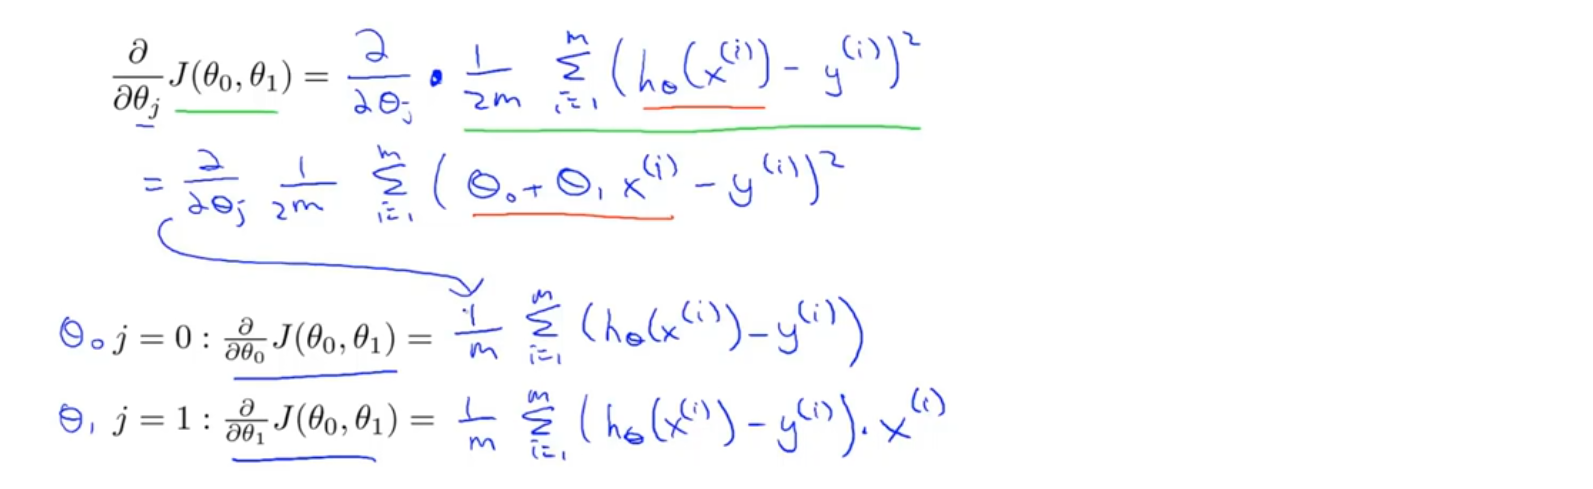 ∂/∂θj J(θ0, θ1) = ∂/∂θj · 1/2m Σ_{i=1}^{m} (hθ(x^(i)) - y^(i))²
= ∂/∂θj 1/2m Σ_{i=1}^{m} (θ0 + θ1 x^(i) - y^(i))²
θ0 j = 0 : ∂/∂θ0 J(θ0, θ1) = 1/m Σ_{i=1}^{m} (hθ(x^(i)) - y^(i))
θ1 j = 1 : ∂/∂θ1 J(θ0, θ1) = 1/m Σ_{i=1}^{m} (hθ(x^(i)) - y^(i)) · x^(i)